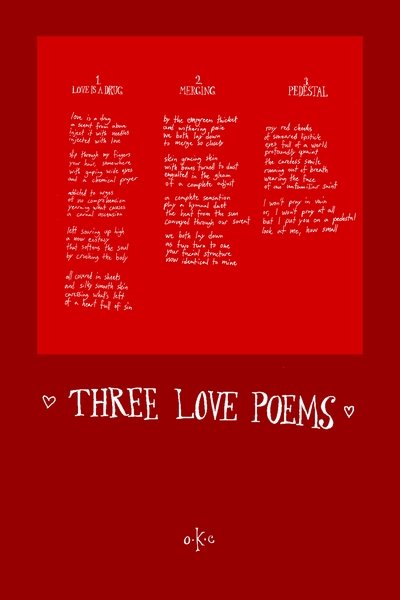 1.
LOVE IS A DRUG
love is a drug
a scent from above
inject it with needles
injected with love
slip through my fingers
your hair, somewhere
with gaping wide eyes
and a chemical prayer
addicted to urges
of our comprehension
yearning what causes
a carnal ascension
left soaring up high
a new ecstasy
that softens the soul
by crushing the body
all covered in sheets
and silky smooth skin
caressing what's left
of a heart full of sin
2.
MERGING
by the evergreen thicket
and withering pine
we both lay down
to merge so closely
skin grazing skin
with bones turned to dust
engulfed in the gleam
of a complete adjust
a complete sensation
play a hymnal duet
the heat from the sun
conveyed through our sweat
we both lay down
as two turn to one
your facial structure
now identical to mine
3.
PEDESTAL
rosy red cheeks
of smeared lipstick
eyes full of a world
profoundly quaint
the careless smile
running out of breath
wearing the face
of our unfamiliar saint
I won't pray in vain
or, I won't pray at all
but I put you on a pedestal
look at me, how small
THREE LOVE POEMS
o.k.c